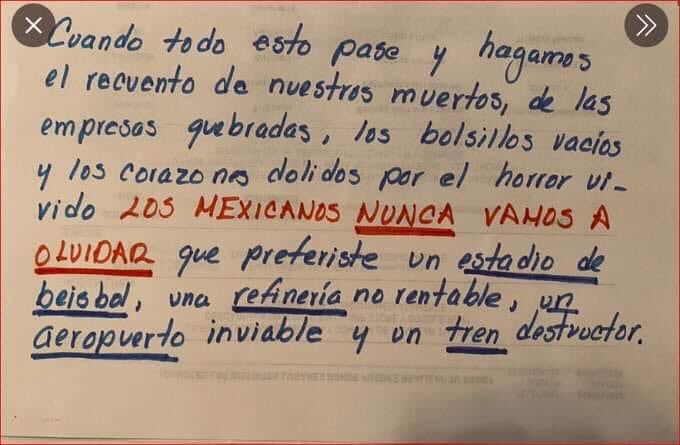 Cuando todo esto pase y hagamos
el recuento de nuestros muertos, de las
empresas quebradas, los bolsillos vacíos
y los corazones dolidos por el horror vi-
vido LOS MEXICANOS NUNCA VAMOS A
OLVIDAR que preferiste un estadio de
beisbol, una refinería no rentable, un
aeropuerto inviable y un tren destructor.